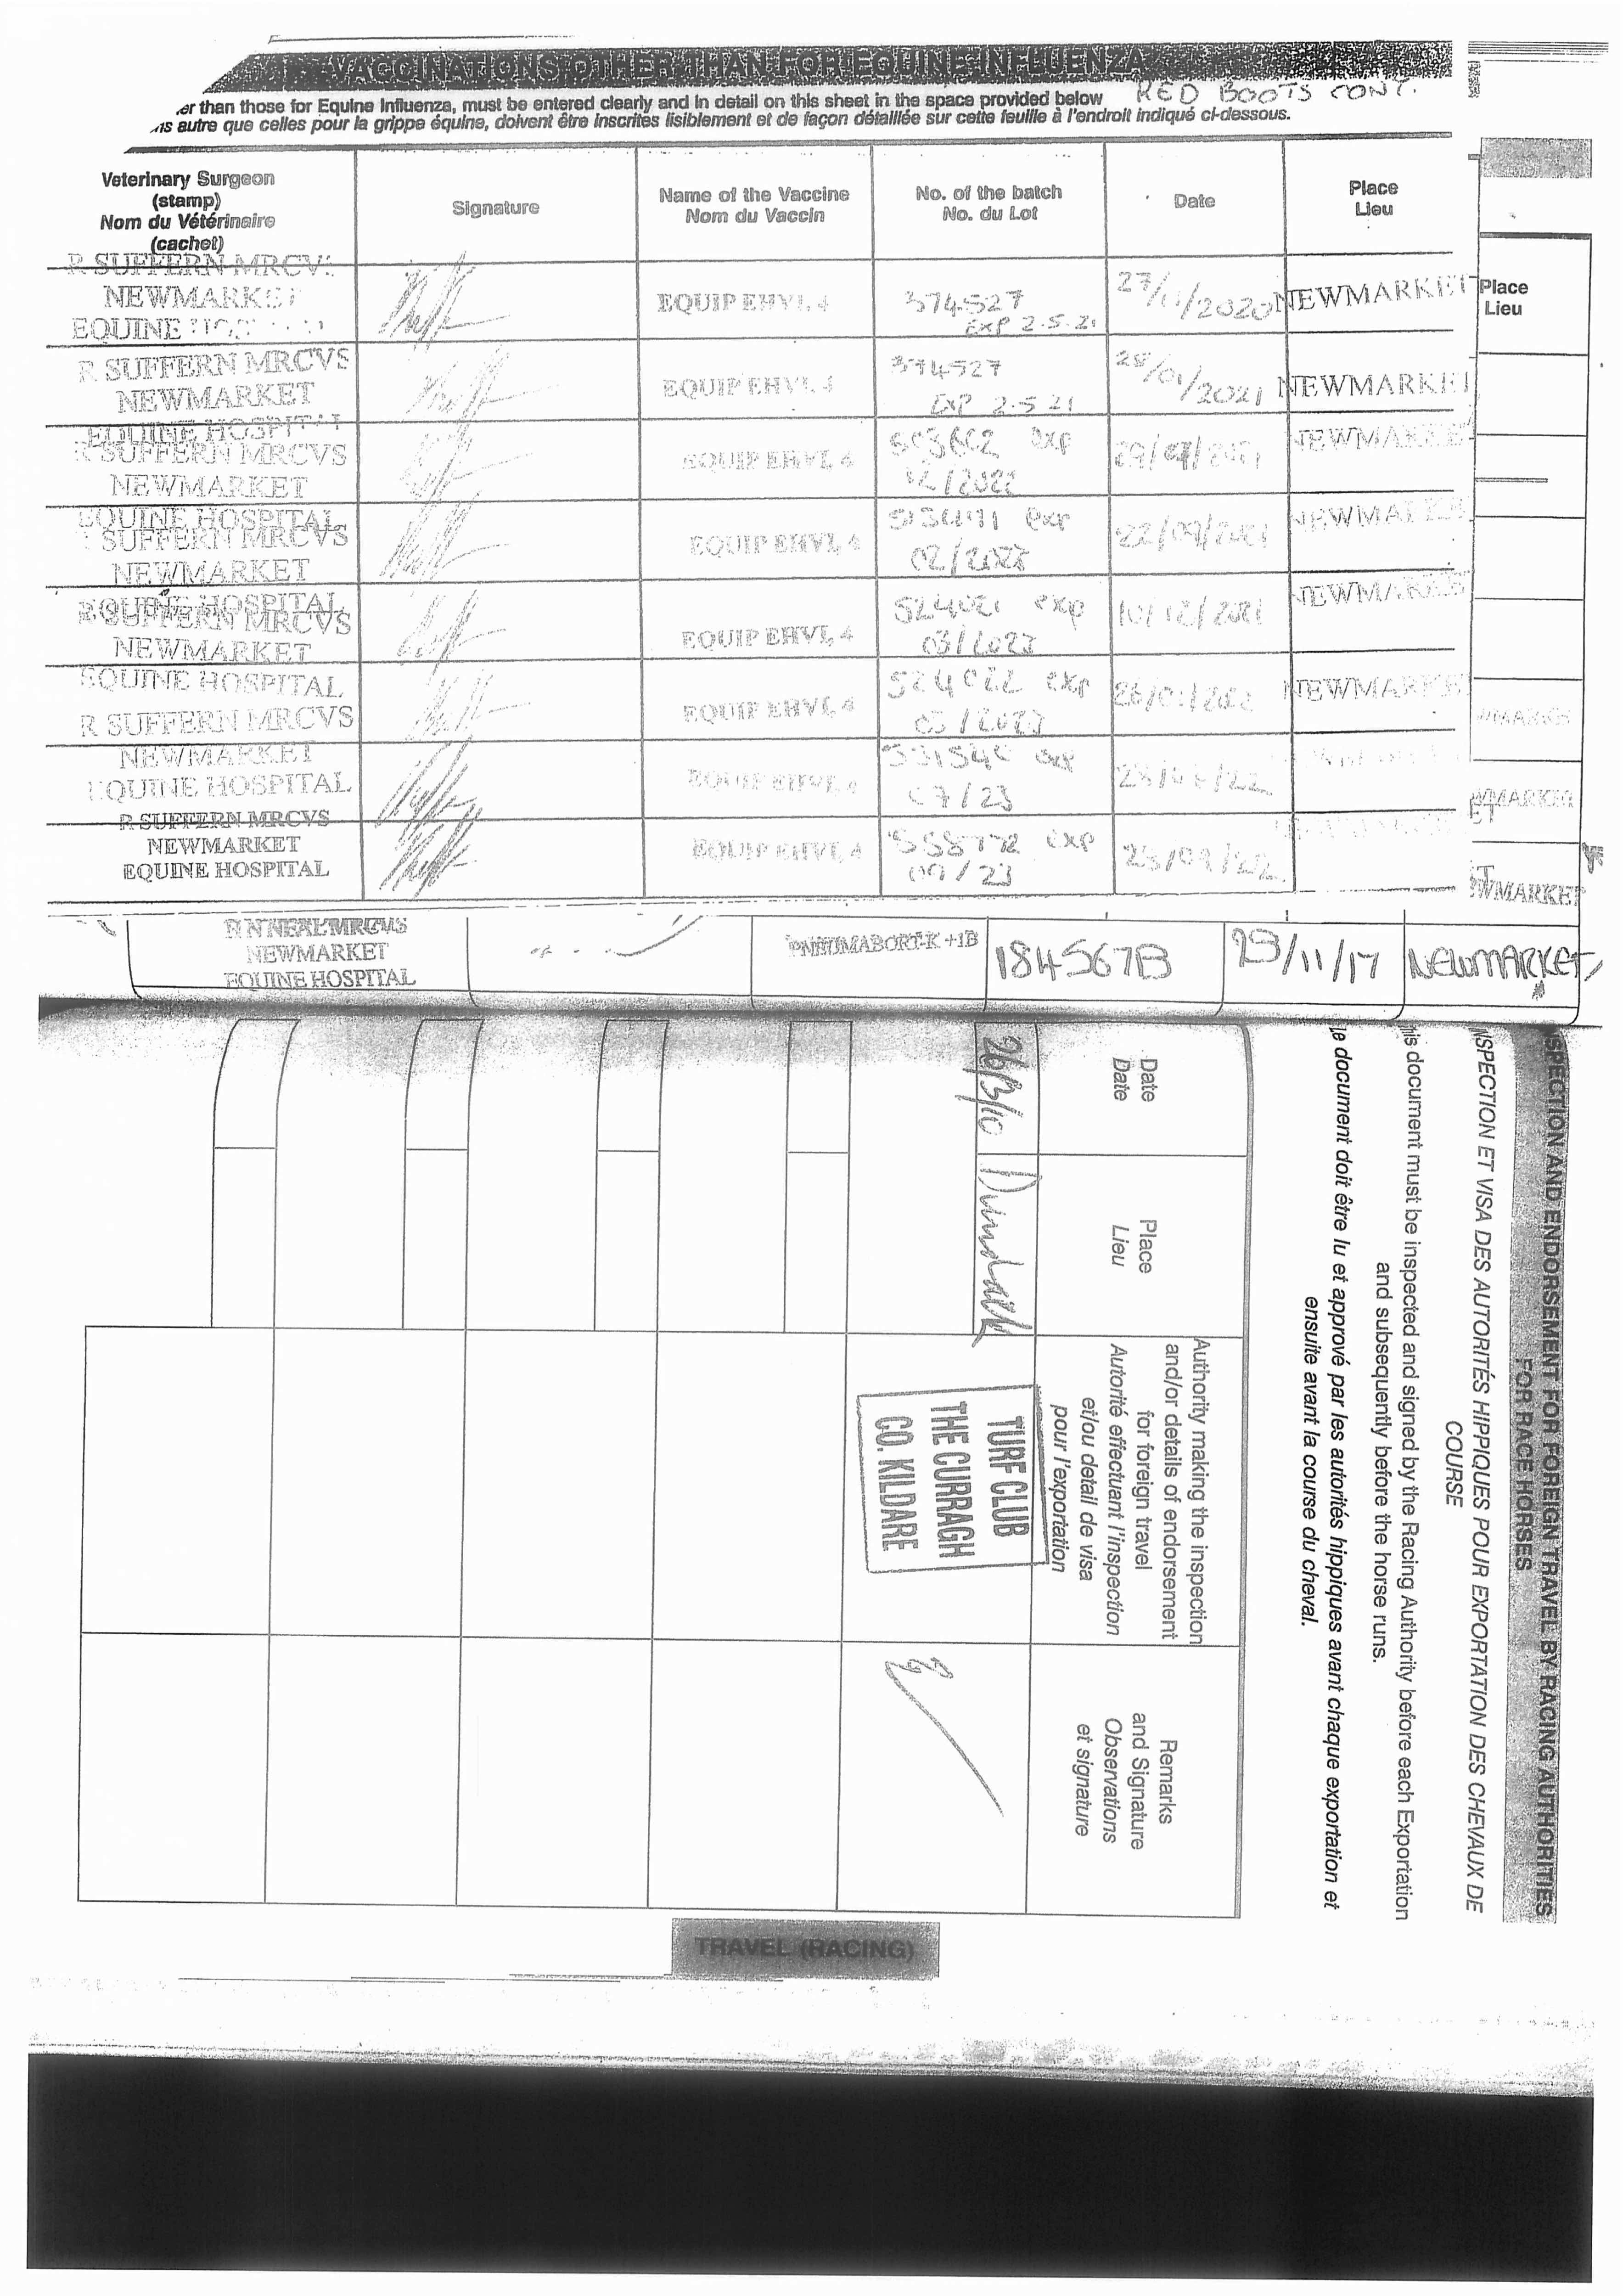 VACCINATIONS OTHER THAN FOR EQUINE INFLUENZA
er than those for Equine Influenza, must be entered clearly and in detail on this sheet in the space provided below RED BOOTS CONT.
ns autre que celles pour la grippe équine, doivent être inscrites lisiblement et de façon détaillée sur cette feuille à l'endroit indiqué ci-dessous.
Veterinary Surgeon
(stamp)
Nom du Vétérinaire
(cachet)
Signature
Name of the Vaccine
Nom du Vaccin
No. of the batch
No. du Lot
Date
Place
Lieu
Place
Lieu
R SUFFERN MRCV
NEWMARKET
EQUINE
EQUIP EHV1,4
374527
EXP 2.5.21
27/11/2020
NEWMARKET
R SUFFERN MRCVS
NEWMARKET
EQUINE HOSPITAL
EQUIP EHV1,4
374527
EXP 2.5.21
28/01/2021
NEWMARKET
R SUFFERN MRCVS
NEWMARKET
EQUINE HOSPITAL
EQUIP EHV1,4
exp
NEWMARKET
SUFFERN MRCVS
NEWMARKET
EQUINE HOSPITAL
EQUIP EHV1,4
exp
02/2023
22/09/2021
NEWMARKE
R SUFFERN MRCVS
NEWMARKET
EQUINE HOSPITAL
EQUIP EHV1,4
524021 exp
03/2023
10/12/2021
NEWMARKE
R SUFFERN MRCVS
NEWMARKET
EQUINE HOSPITAL
EQUIP EHV1,4
524022 exp
03/2023
NEWMARKE
WMARKE
EQUIP EHV1,4
exp
07/23
WMARKE
ET
R SUFFERN MRCVS
NEWMARKET
EQUINE HOSPITAL
EQUIP EHV1,4
558772 exp
09/23
23/09/22
WMARKET
R N NEAL MRCVS
NEWMARKET
EQUINE HOSPITAL
PNEUMABORT-K +1B
184567B
29/11/17
NEWMARKET
SPECTION AND ENDORSEMENT FOR FOREIGN TRAVEL BY RACING AUTHORITIES
FOR RACE HORSES
NSPECTION ET VISA DES AUTORITÉS HIPPIQUES POUR EXPORTATION DES CHEVAUX DE
COURSE
his document must be inspected and signed by the Racing Authority before each Exportation
and subsequently before the horse runs.
e document doit être lu et apprové par les autorités hippiques avant chaque exportation et
ensuite avant la course du cheval.
Date
Date
Place
Lieu
Authority making the inspection
and/or details of endorsement
for foreign travel
Autorité effectuant l'inspection
et/ou detail de visa
pour l'exportation
Remarks
and Signature
Observations
et signature
26/3/10
Dundalk
TURF CLUB
THE CURRAGH
CO. KILDARE
TRAVEL (RACING)